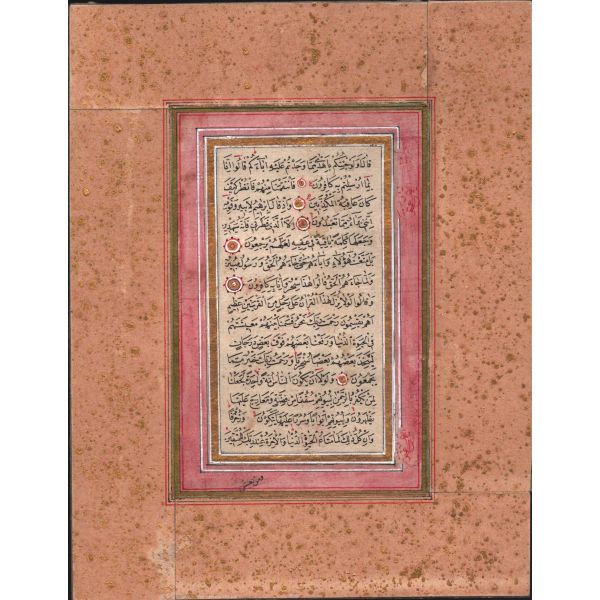 قَالَ اَوَلَوْ جِئْتُكُمْ بِاَهْدٰى مِمَّا وَجَدْتُمْ عَلَيْهِ اٰبَاءَكُمْ قَالُوا اِنَّا
بِمَا اُرْسِلْتُمْ بِهِ كَافِرُونَ فَانْتَقَمْنَا مِنْهُمْ فَانْظُرْ كَيْفَ
كَانَ عَاقِبَةُ الْمُكَذِّبِينَ وَاِذْ قَالَ اِبْرٰهِيمُ لِاَبِيهِ وَقَوْمِهِ
اِنَّنِي بَرَاءٌ مِمَّا تَعْبُدُونَ اِلَّا الَّذِي فَطَرَنِي فَاِنَّهُ سَيَهْدِينِ
وَجَعَلَهَا كَلِمَةً بَاقِيَةً فِي عَقِبِهِ لَعَلَّهُمْ يَرْجِعُونَ
بَلْ مَتَّعْتُ هٰؤُلَاءِ وَاٰبَاءَهُمْ حَتّٰى جَاءَهُمُ الْحَقُّ وَرَسُولٌ مُبِينٌ
وَلَمَّا جَاءَهُمُ الْحَقُّ قَالُوا هٰذَا سِحْرٌ وَاِنَّا بِهِ كَافِرُونَ
وَقَالُوا لَوْلَا نُزِّلَ هٰذَا الْقُرْاٰنُ عَلٰى رَجُلٍ مِنَ الْقَرْيَتَيْنِ عَظِيمٍ
اَهُمْ يَقْسِمُونَ رَحْمَتَ رَبِّكَ نَحْنُ قَسَمْنَا بَيْنَهُمْ مَعِيشَتَهُمْ
فِي الْحَيٰوةِ الدُّنْيَا وَرَفَعْنَا بَعْضَهُمْ فَوْقَ بَعْضٍ دَرَجَاتٍ
لِيَتَّخِذَ بَعْضُهُمْ بَعْضًا سُخْرِيًّا وَرَحْمَتُ رَبِّكَ خَيْرٌ مِمَّا
يَجْمَعُونَ وَلَوْلَا اَنْ يَكُونَ النَّاسُ اُمَّةً وَاحِدَةً لَجَعَلْنَا
لِمَنْ يَكْفُرُ بِالرَّحْمٰنِ لِبُيُوتِهِمْ سُقُفًا مِنْ فِضَّةٍ وَمَعَارِجَ عَلَيْهَا
يَظْهَرُونَ وَلِبُيُوتِهِمْ اَبْوَابًا وَسُرُرًا عَلَيْهَا يَتَّكِئُونَ وَزُخْرُفًا
وَاِنْ كُلُّ ذٰلِكَ لَمَّا مَتَاعُ الْحَيٰوةِ الدُّنْيَا وَالْاٰخِرَةُ عِنْدَ رَبِّكَ لِلْمُتَّقِينَ